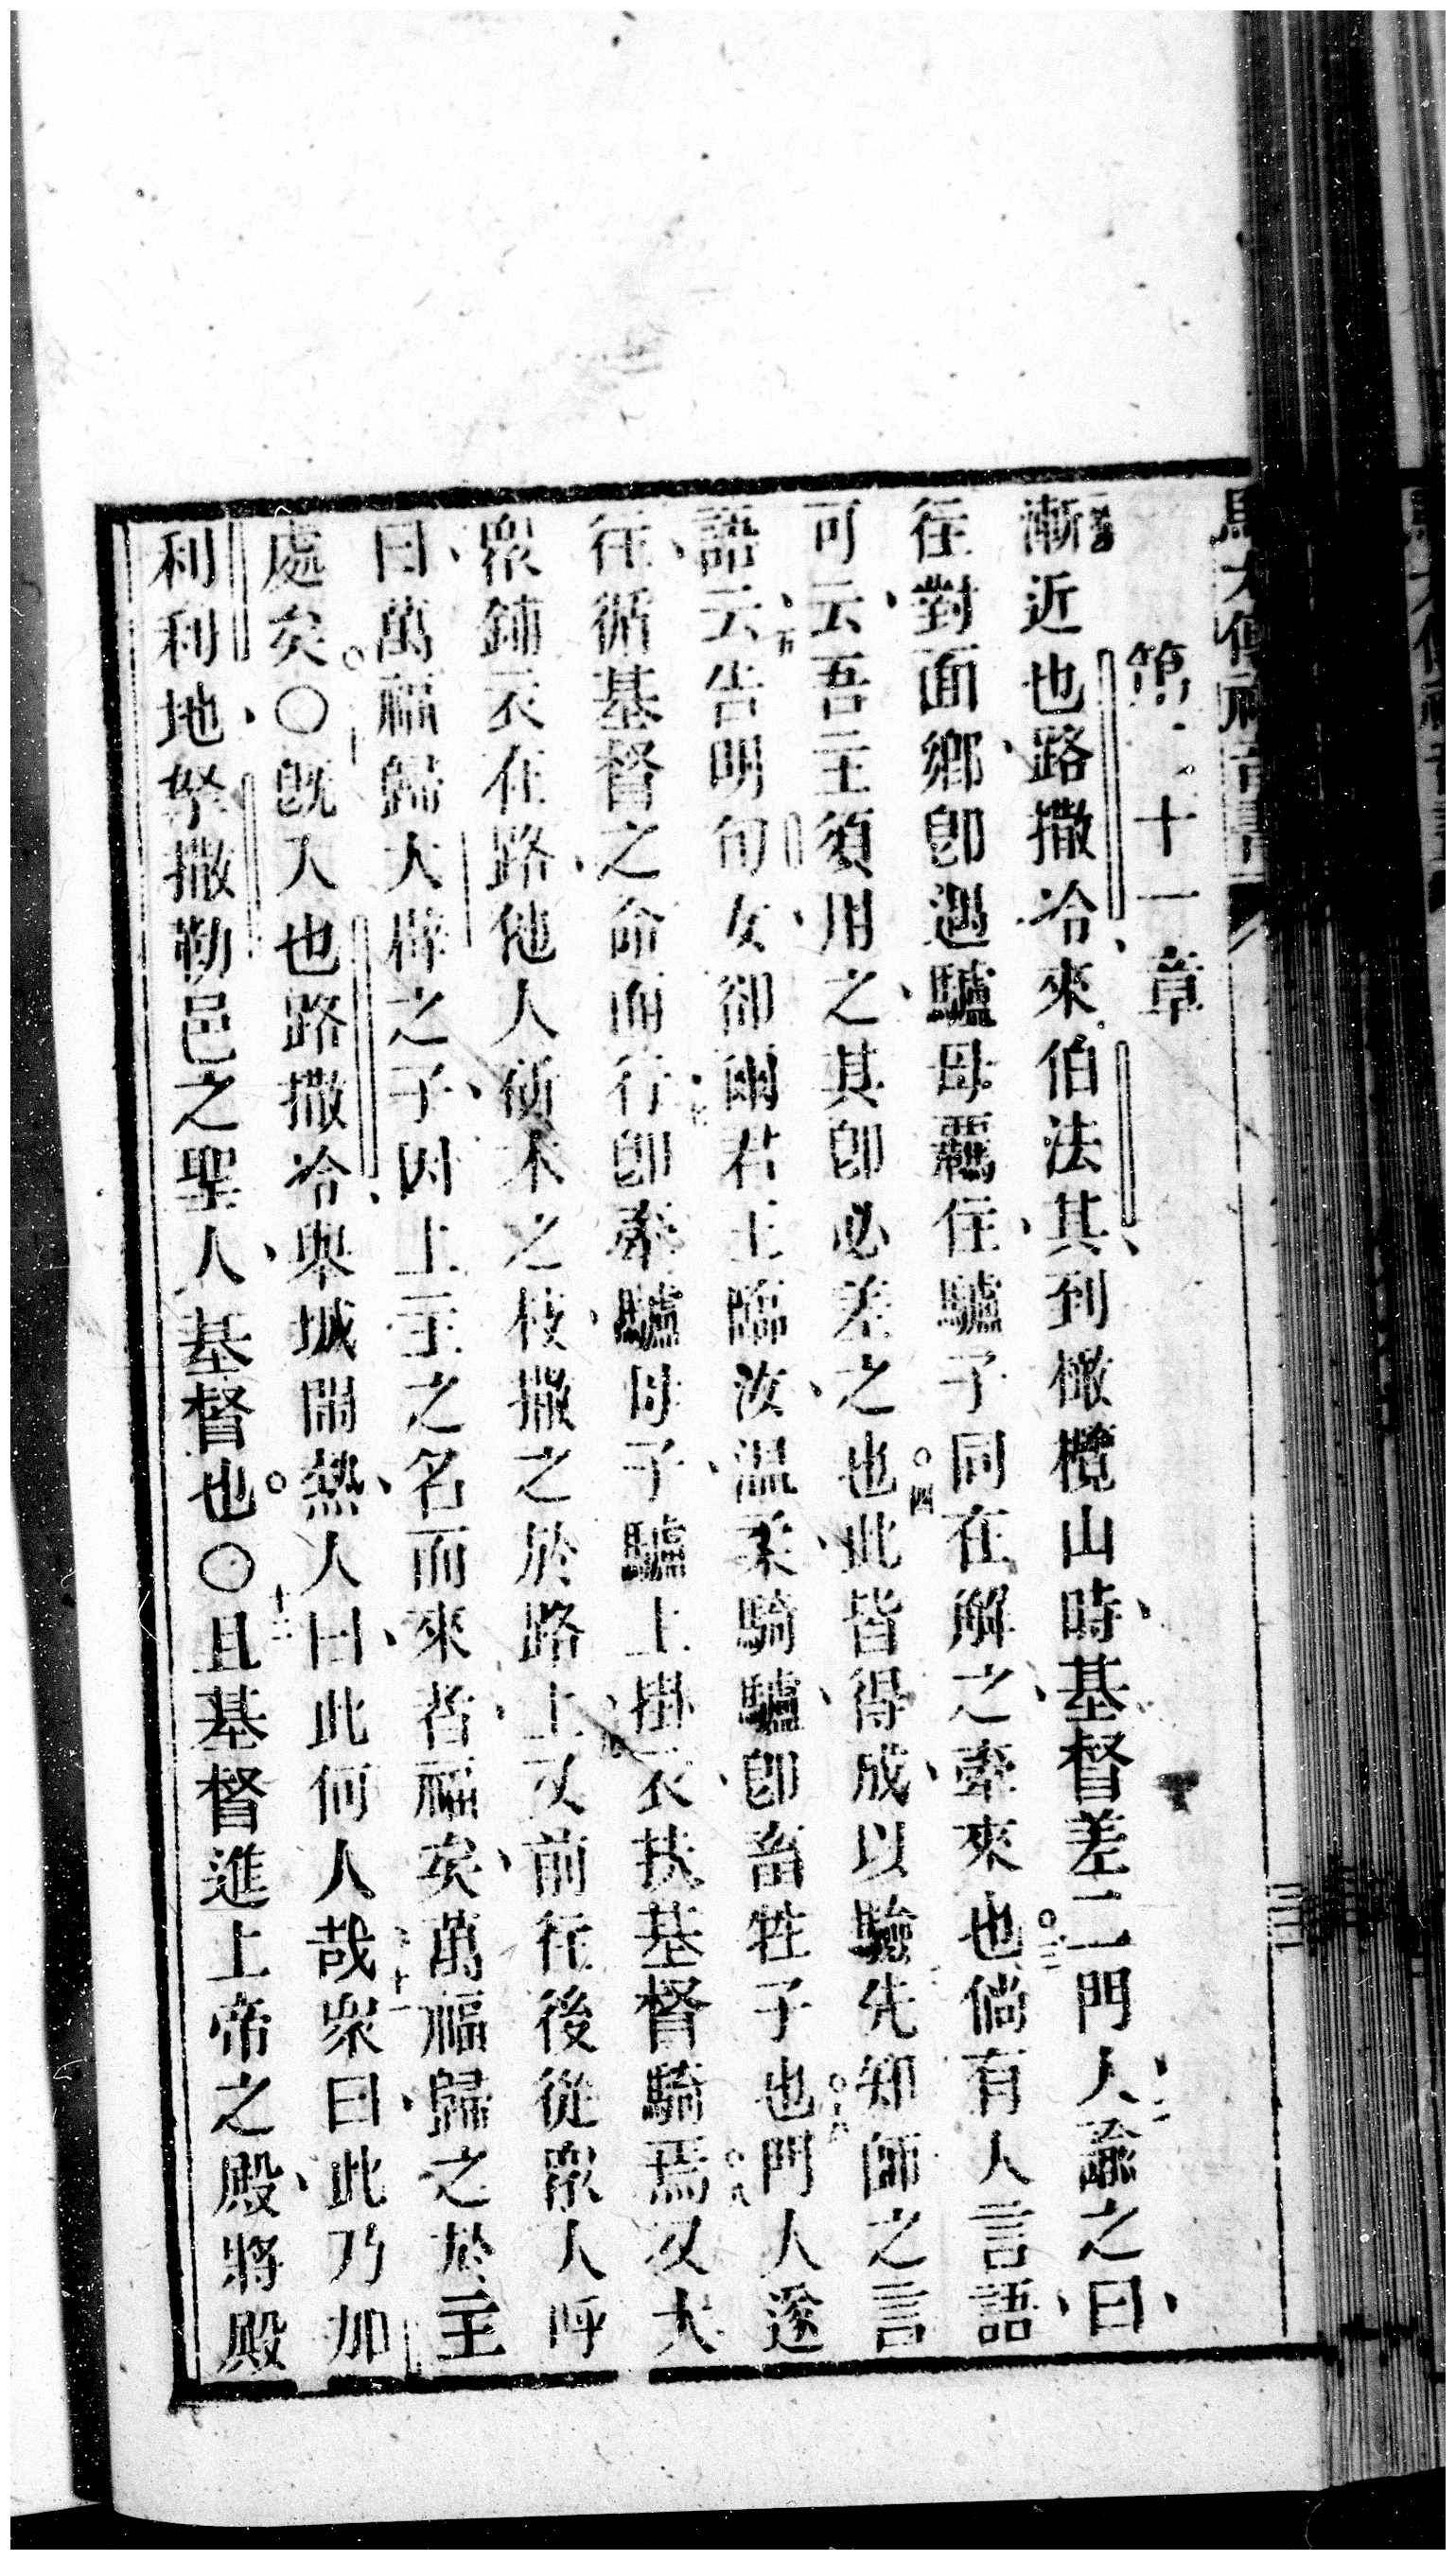 第二十一章
漸近也路撒冷、來伯法其、到橄欖山時、基督差二門人、諭之曰、
往對面鄉、卽遇驢母覊住、驢子同在、解之、牽來也。三倘有人言語、
可云、吾主須用之、其卽必差之也。四此皆得成、以驗先知師之言
語、云、五告明旬女、卻爾君王臨汝、溫柔、騎驢、卽畜牲子也。六門人遂
往、循基督之命而行、七卽牽驢母子、驢上掛衣、扶基督騎焉。八又大
衆鋪衣在路、他人斫木之枝、撒之於路上、九又前行後從衆人呼
曰、萬福歸大闢之子、因上主之名而來者、福矣、萬福歸之於主
處矣。〇十既入也路撒冷、舉城鬧熱、人曰、此何人哉、十一衆曰、此乃加
利利地、拏撒勒邑之聖人、基督也。〇十二且基督進上帝之殿、將殿